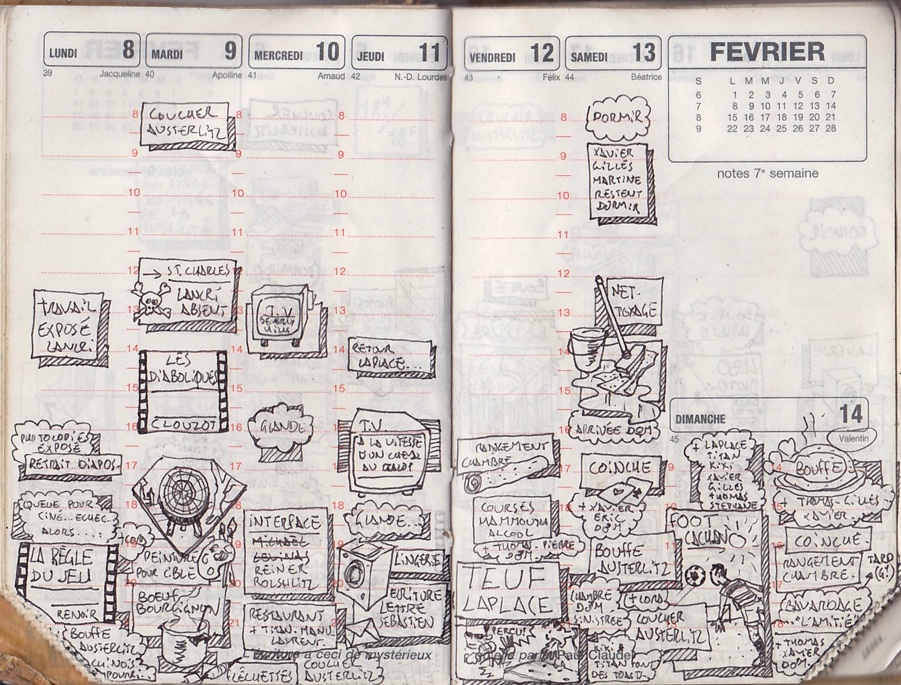 LUNDI 8
39 Jacqueline
TRAVAIL
EXPOSÉ
LANCRI.
PHOTOCOPIES
EXPOSÉ
RETRAIT DIAPOS.
QUEUE POUR
CINÉ... ECHEC.
ALORS....
LA RÈGLE
DU JEU
RENOIR
BOUFFE
AUSTERLITZ
CHINOIS
POURRI...
MARDI 9
40 Apolline
COUCHER
AUSTERLITZ
→ ST. CHARLES
LANCRI
ABSENT
LES
DIABOLIQUES
CLOUZOT
PEINTURE
POUR CIBLE
BOEUF
BOURGUIGNON
FLÉCHETTES
MERCREDI 10
41 Arnaud
T.V
BEVERLY
HILLS
GLANDE
INTERFACE
MICHAEL
LEVINAS
REINER
RESTAURANT
+ TITAN. MANU.
LAURENT
COUCHER
AUSTERLITZ
JEUDI 11
42 N.-D. Lourdes
RETOUR
LAPLACE...
T.V
A LA VITESSE
D'UN CHEVAL
AU GALOP
GLANDE...
LINGERIE
ECRITURE
LETTRE
SEBASTIEN
a ceci de mystérieux
VENDREDI 12
43 Félix
RANGEMENT
CHAMBRE
COURSES
MAMMOUTH
ALCOOL
+ THOMAS. PIERRE
DOM
TEUF
LAPLACE
PERCUS
SAMEDI 13
44 Béatrice
DORMIR
XAVIER
GILLES
MARTINE
RESTENT
DORMIR
NET-
TOYAGE
ARRIVÉE DOM
COINCHE
+ XAVIER
ERIC
DPT
BOUFFE
AUSTERLITZ
CHAMBRE
DOM
SINISTRÉE
COUCHER
AUSTERLITZ
TITAN FONT
DES TOASTS
Paul Claudel
FEVRIER
S L M M J V S D
6 1 2 3 4 5 6 7
7 8 9 10 11 12 13 14
8 15 16 17 18 19 20 21
9 22 23 24 25 26 27 28
notes 7e semaine
DIMANCHE 14
45 Valentin
+ LAPLACE
TITAN
KIKI
XAVIER
GILLES
+ THOMAS
STEPHANE
FOOT
CACHAN
BOUFFE
+ THOMAS. GILLES
XAVIER
COINCHE
RANGEMENT
CHAMBRE.
TARD
BAVARDAGE
... L'AMITIÉ
+ THOMAS
XAVIER
DOM.